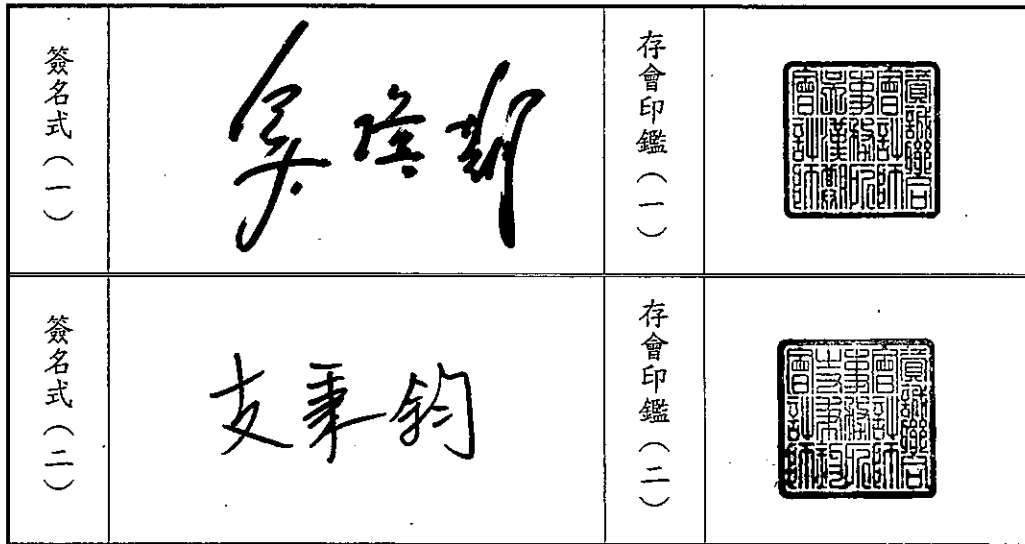 簽名式（一）
吳漢期
存會印鑑（一）
資誠聯合
會計師
事務所
吳漢期
會計師
簽名式（二）
支秉鈞
存會印鑑（二）
資誠聯合
會計師
事務所
支秉鈞
會計師